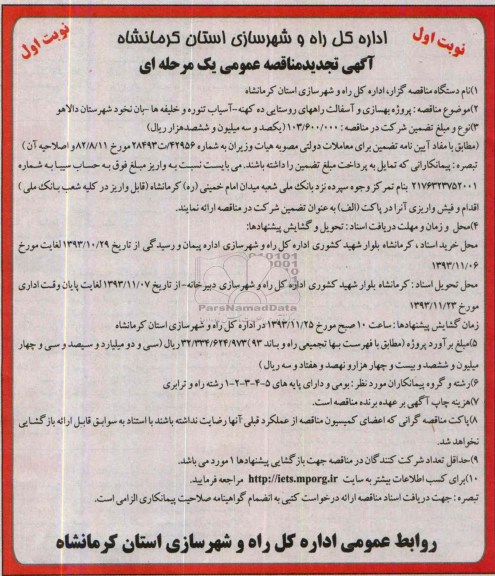 نوبت اول
اداره کل راه و شهرسازی استان کرمانشاه
نوبت اول
آگهی تجدیدمناقصه عمومی یک مرحله ای
۱)نام دستگاه مناقصه گزار، اداره کل راه و شهرسازی استان کرمانشاه
۲)موضوع مناقصه : پروژه بهسازی و آسفالت راههای روستایی ده کهنه–آسیاب تنوره و خلیفه ها –بان نخود شهرستان دالاهو
۳)نوع و مبلغ تضمین شرکت در مناقصه: ۱۰۳/۶۰۰/۰۰۰(یکصد و سه میلیون و ششصدهزار ریال)
(مطابق با مفاد آیین نامه تضمین برای معاملات دولتی مصوبه هیات وزیران به شماره ۴۲۹۵۶/ت۲۸۴۹۳ه مورخ ۸۲/۸/۱۱ و اصلاحیه آن )
تبصره : پیمانکارانی که تمایل به پرداخت مبلغ تضمین را داشته باشند. می بایست نسبت به واریز مبلغ فوق به حساب سیبا به شماره
۲۱۷۶۴۲۳۷۵۲۰۰۱ بنام تمرکز وجوه سپرده نزد بانک ملی شعبه میدان امام خمینی (ره) کرمانشاه (قابل واریز در کلیه شعب بانک ملی )
اقدام و فیش واریزی آنرا در پاکت (الف) به عنوان تضمین شرکت در مناقصه ارائه نمایند.
۴)محل و زمان و مهلت دریافت اسناد : تحویل و گشایش پیشنهادها:
محل خرید اسناد ، کرمانشاه بلوار شهید کشوری اداره کل راه و شهرسازی اداره پیمان و رسیدگی از تاریخ ۱۳۹۳/۱۰/۲۹ لغایت مورخ
۱۳۹۳/۱۱/۰۶
محل تحویل اسناد : کرمانشاه بلوار شهید کشوری اداره کل راه و شهرسازی دبیرخانه – از تاریخ ۱۳۹۳/۱۱/۰۷ لغایت پایان وقت اداری
مورخ ۱۳۹۳/۱۱/۲۳
زمان گشایش پیشنهادها : ساعت ۱۰ صبح مورخ ۱۳۹۳/۱۱/۲۵ در اداره کل راه و شهرسازی استان کرمانشاه
۵)مبلغ برآورد پروژه (مطابق با فهرست بها تجمیعی راه و باند ۹۳) ۳۲/۳۳۴/۶۲۴/۹۷۳ ریال (سی و دو میلیارد و سیصد و سی و چهار
میلیون و ششصد و بیست و چهار هزار و نهصد و هفتاد و سه ریال )
۶)رشته و گروه پیمانکاران مورد نظر : بومی و دارای پایه های ۵-۴-۳-۲-۱ رشته راه و ترابری
۷)هزینه چاپ آگهی بر عهده برنده مناقصه است.
۸)پاکت مناقصه گرانی که اعضای کمیسیون مناقصه از عملکرد قبلی آنها رضایت نداشته باشند با استناد به سوابق قابل ارائه بازگشایی
نخواهد شد.
۹)حداقل تعداد شرکت کنندگان در مناقصه جهت بازگشایی پیشنهادها ۱ مورد می باشد.
۱۰)برای کسب اطلاعات بیشتر به سایت http://iets.mporg.ir مراجعه فرمایید.
تبصره : جهت دریافت اسناد مناقصه ارائه درخواست کتبی به انضمام گواهینامه صلاحیت پیمانکاری الزامی است.
روابط عمومی اداره کل راه و شهرسازی استان کرمانشاه
ParsNamadData